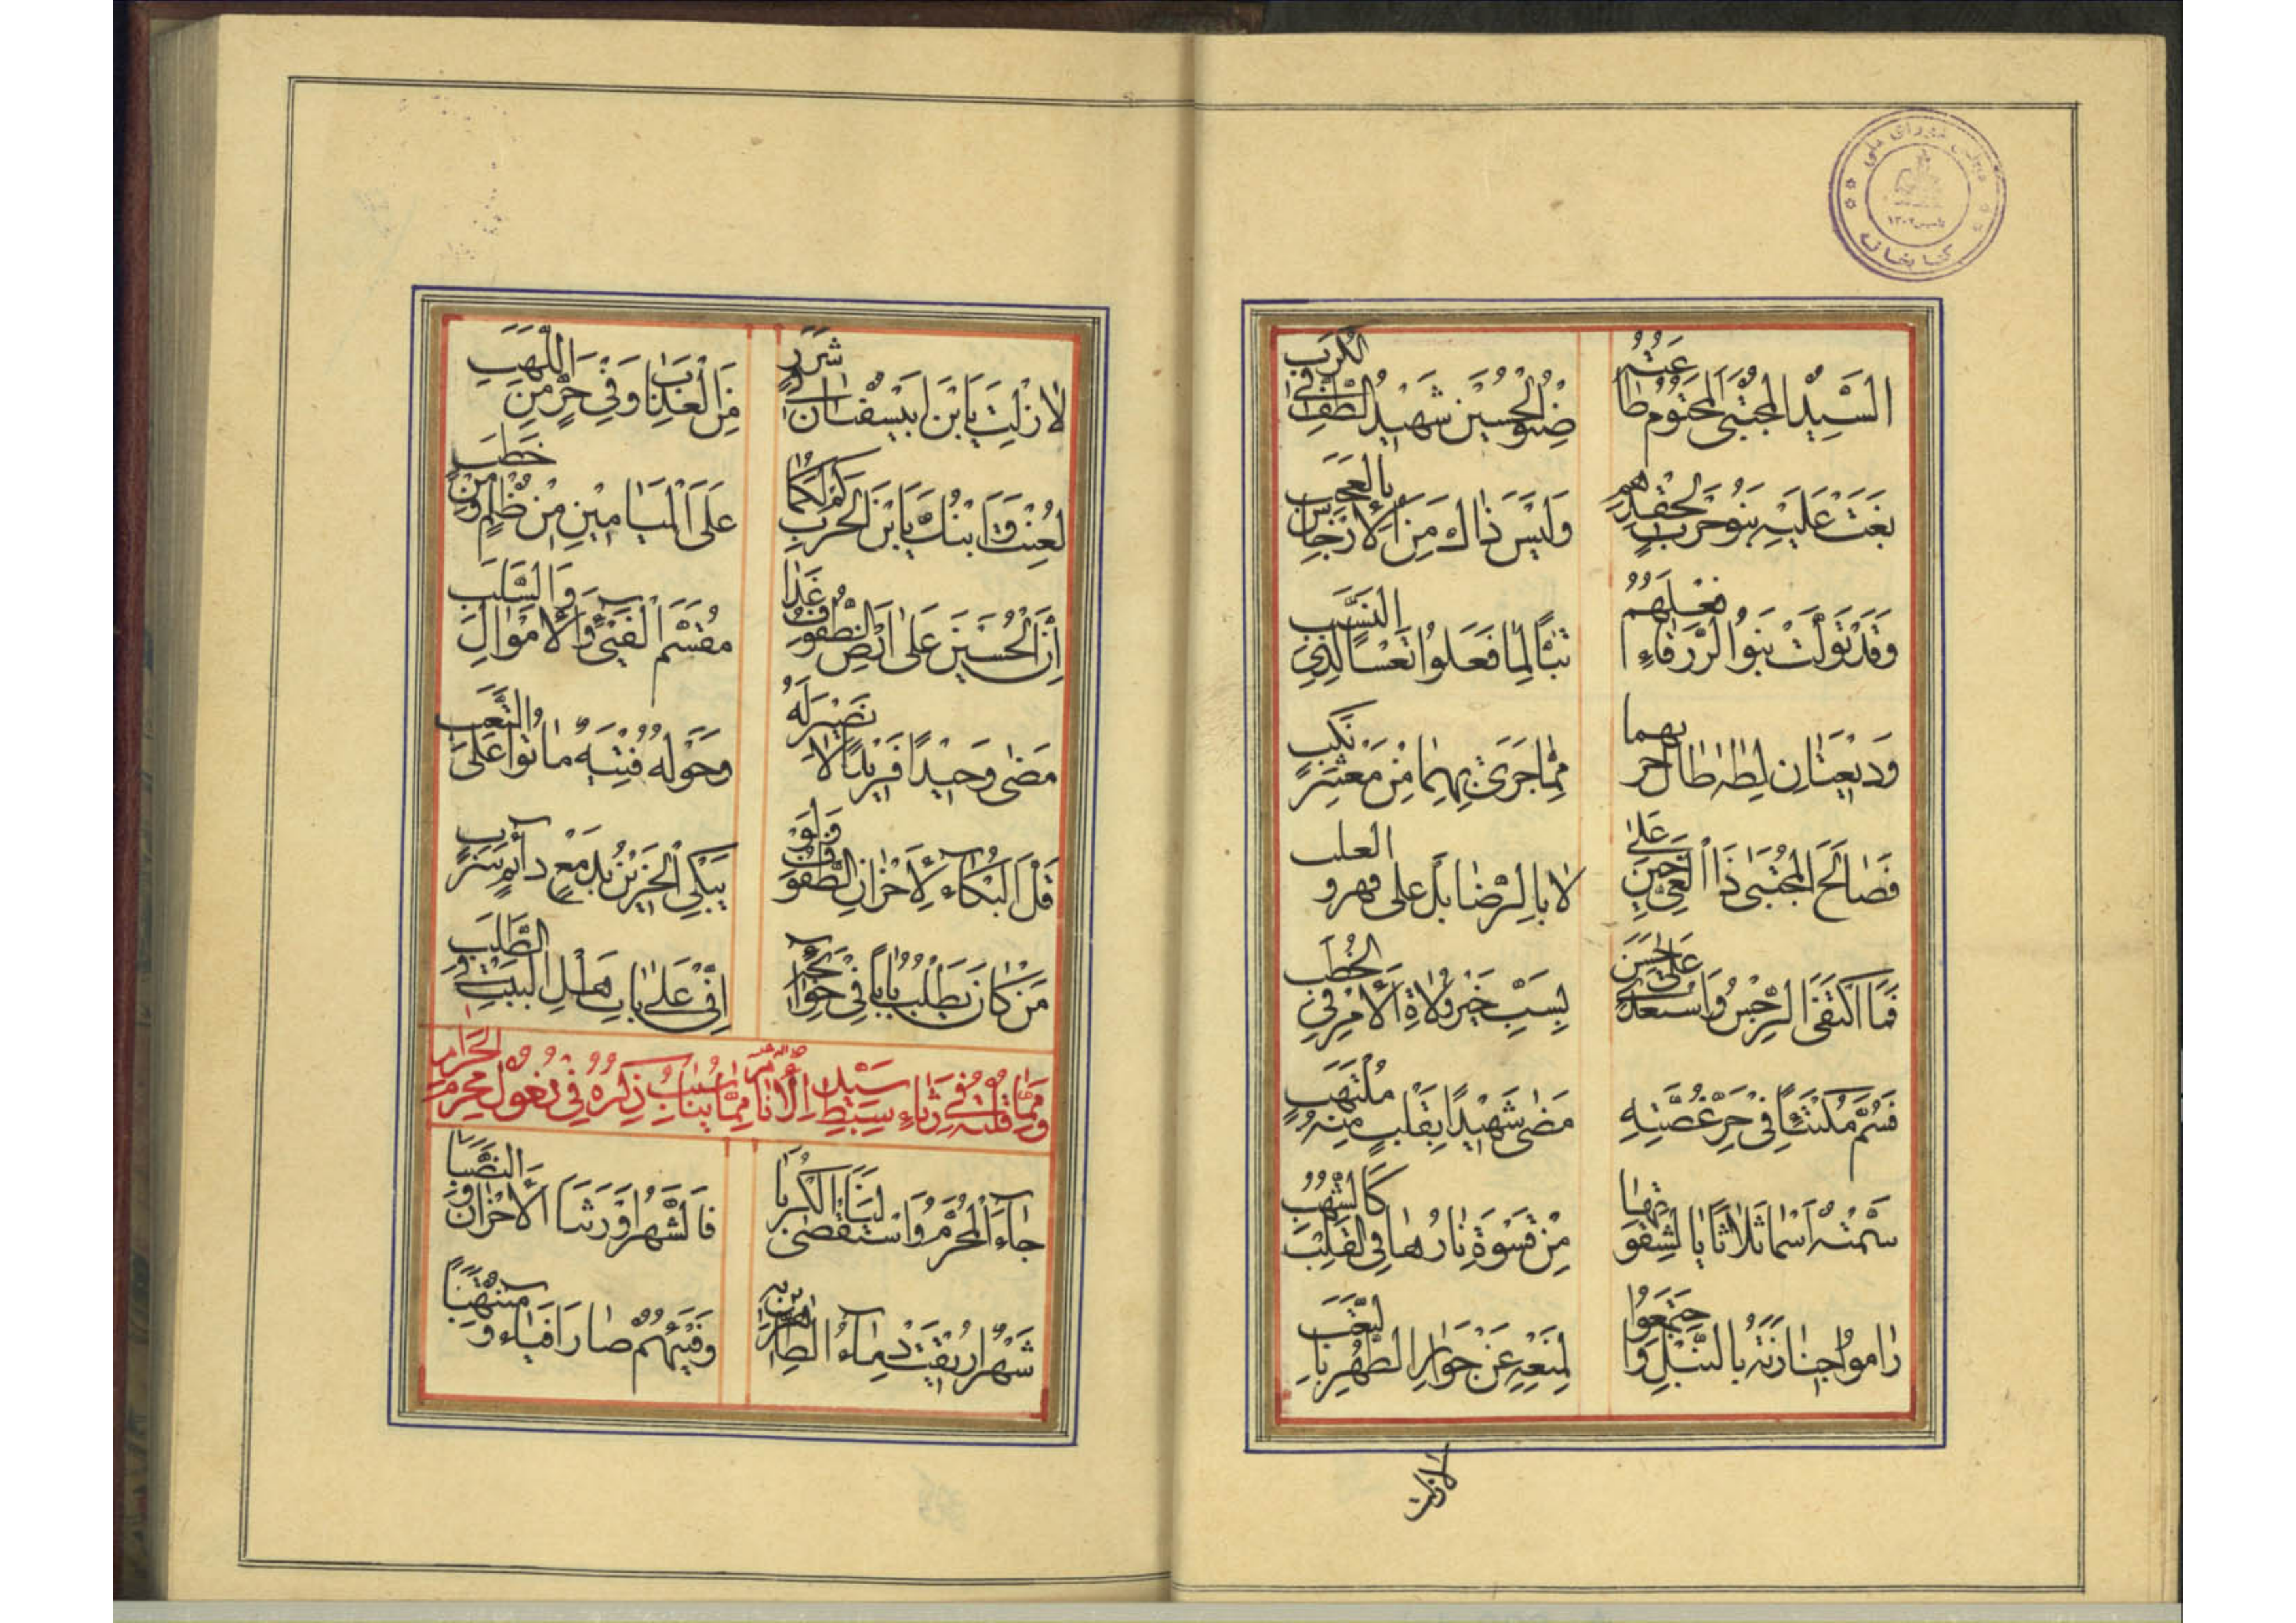 مجلس شورای ملی
تاسیس ۱۳۰۲
کتابخانه
السَّيِّدُ المُجْتَبَى المَحْتُومُ طَاعَتُهُ صِنْوُ الحُسَيْنِ شَهِيدُ الطَّفِّ فِي الكُرَبِ
بَغَتْ عَلَيْهِ بَنُو حَرْبٍ لِحِقْدِهِم وَلَيْسَ ذَاكَ مِنَ الأَرْجَاسِ بِالعَجَبِ
وَقَدْ تَوَلَّتْ بَنُو الزَّرْقَاءِ فِعْلَهُمُ تَبًّا لِمَا فَعَلُوا تَعْسًا لِذِي النَّسَبِ
وَدِيعَتَانِ لِطٰهٰ طَالَ بِهِمَا مِمَّا جَرَى بِهِمَا مِنْ مَعْشَرٍ نُكُبِ
فَصَالَحَ المُجْتَبَى ذَا الغَيِّ عَنْ عَلَى لا بِالرِّضَا بَلْ عَلَى قهر و الغلب
فَمَا اكْتَفَى الرِّجْسُ وَاسْتَعْدَى عَلَى حَسَنٍ بِسَبِّ خَيْرِ وُلَاةِ الأَمْرِ فِي الخُطَبِ
فَسُمَّ مُكْتَئِبًا فِي حَرِّ غُصَّتِهِ مَضَى شَهِيدًا بِقَلْبٍ مِنْهُ مُلْتَهِبِ
سَمَّتْهُ أَسْمَا ثَلَاثًا بِالشِقْوَتِهَا مِنْ قَسْوَةٍ نَارُهَا فِي القَلْبِ كَالشُّهُبِ
رَامُوا جَنَازَتَهُ بِالنَّبْلِ وَاجْتَمَعُوا لِمَنْعِهِ عَنْ جِوَارِ الطُّهْرِ بِالتَّعَبِ
لازلت
لَا زِلْتَ يَا بْنَ أَبِي سُفْيَانَ فِي شَرَرٍ مِنَ العَذَابِ وَفِي حَرٍّ مِنَ اللَّهَبِ
لُعِنْتَ وَابْنُكَ يَا بْنَ الحَرْبِ كَمْ لَكُمَا عَلَى المَيَامِينِ مِنْ ظُلْمٍ وَمِنْ خَطَبِ
إِنَّ الحُسَيْنَ عَلَى أَرْضِ الطُّفُوفِ غَدَا مُقَسَّمَ الفَيْءِ وَالأَمْوَالِ وَالسَّلَبِ
مَضَى وَحِيدًا فَرِيدًا لَا نَصِيرَ لَهُ وَحَوْلَهُ فِتْيَةٌ مَاتُوا عَلَى التَّعَبِ
قَلَّ البُكَاءُ لِأَحْزَانِ الطُّفُوفِ فَلَوْ يَبْكِي الحَزِينُ بِدَمْعٍ دَائِمٍ سَرَبِ
مَنْ كَانَ يَطْلُبُ بَابًا فِي حَوَائِجِهِ إِنِّي عَلَى بَابِ أَهْلِ البَيْتِ فِي الطَّلَبِ
وَمِمَّا قُلْتُهُ فِي رِثَاءِ سَيِّدِ الأَنَامِ سِبْطِ مِمَّا يُنَاسِبُ ذِكْرُهُ فِي دُخُولِ مُحَرَّمِ الحَرَامِ
جَاءَ المُحَرَّمُ وَاسْتَقْصَى لَنَا الكُرَبَا فَالشَّهْرُ أَوْرَثَنَا الأَحْزَانَ وَالنَّصَبَا
شَهْرٌ أُرِيقَتْ دِمَاءُ الطَّاهِرِينَ بِهِ وَفَيْئُهُمْ صَارَ أَفْيَاءً وَمُنْتَهَبًا